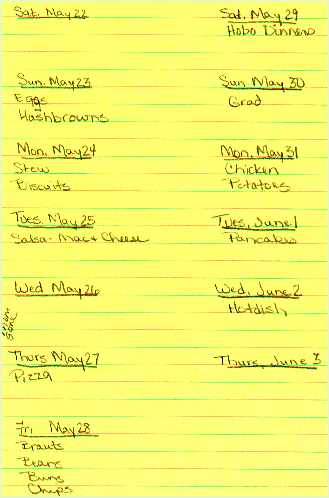 Sat. May 22
Sun. May 23
Eggs
Hashbrowns
Mon. May 24
Stew
Biscuits
Tues. May 25
Salsa - Mac & Cheese
Wed May 26
gone
Thurs May 27
Pizza
Fri May 28
Brauts
Beans
Buns
Chips
Sat. May 29
Hobo Dinners
Sun. May 30
Grad
Mon. May 31
Chicken
Potatoes
Tues, June 1
Pancakes
Wed, June 2
Hotdish
Thurs, June 3